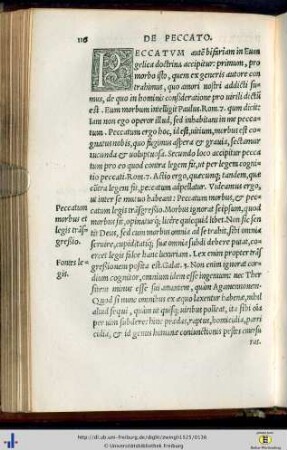 116
DE PECCATO.
PECCATVM autē bifariam in Euangelica
doctrina accipitur: primum, pro
morbo isto, quem ex generis autore con
trahimus, quo amori nostri addicti su
mus, de quo in hominis consideratione pro virili dictū
est. Eum morbum intelligit Paulus Rom. 7. quum dicit:
Iam non ego operor illud, sed inhabitans in me pecca
tum. Peccatum ergo hoc, id est, uitium, morbus est co
gnatus nobis, quo fugimus aspera & grauia, sectamur
iucunda & uoluptuosa. Secundo loco accipitur pecca
tum pro eo quod contra legem fit, ut per legem cognitio
peccati. Rom. 7. Actio ergo, quęcunq; tandem, quę
cōtra legem fit, peccatum adpellatur. Videamus ergo,
ut inter se mutuo habeant: Peccatum morbus, & pec
catum legis trāsgressio. Morbus ignorat seipsum, quod
morbus sit, opinaturq; licere quicquid libet. Non sic sen
tit Deus, sed cum morbus omnia ad se trahit, sibi omnia
seruire, cupiditatiq; suæ omnia subdi debere putat, co
ercet legis falce hanc luxuriam. Lex enim propter trās
gressionem posita est. Galat. 3. Non enim ignorat cor
dium cognitor, omnium idem esse ingenium: nec Ther
sitem minus esse sui amantem, quàm Agamemnonem.
Quod si nunc omnibus ex æquo laxentur habenæ, nihil
aliud sequi, quàm ut quisq; uiribus polleat, ita sibi oīa
per uim subdere: hinc prædas, raptus, homicidia, parri
cidia, & id genus humanæ coniunctionis pestes
ras,
Peccatum
morbus et
legis trās
gressio.
Fontes le
gis.
http://dl.ub.uni-freiburg.de/diglit/zwingli1525/0136
© Universitätsbibliothek Freiburg